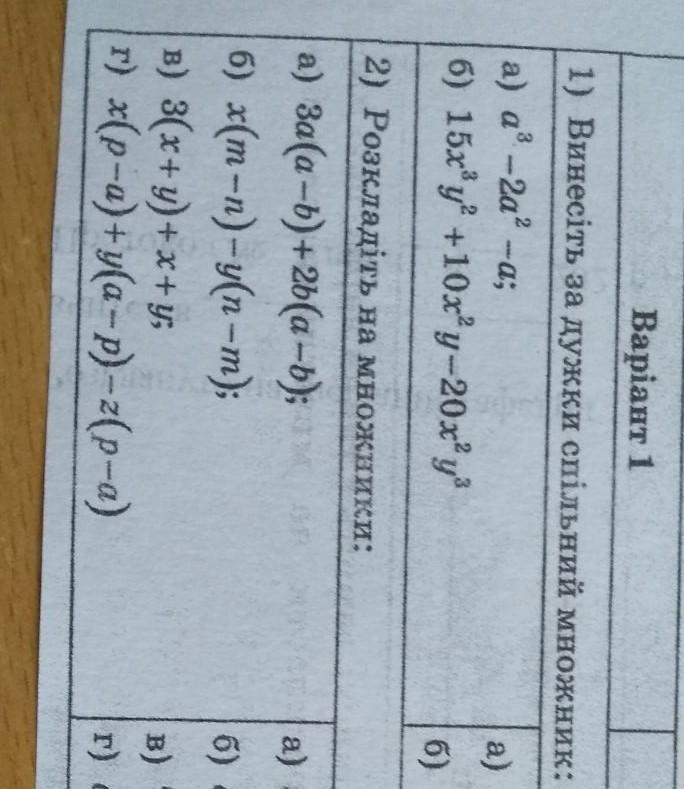 Варіант 1
1) Винесіть за дужки спільний множник:
а) a³ – 2a² – a;
б) 15x³y² + 10x²y – 20x²y³
2) Розкладіть на множники:
а) 3a(a – b) + 2b(a – b);
б) x(m – n) – y(n – m);
в) 3(x + y) + x + y;
г) x(p – a) + y(a – p) – z(p – a)
а)
б)
а)
б)
в)
г)